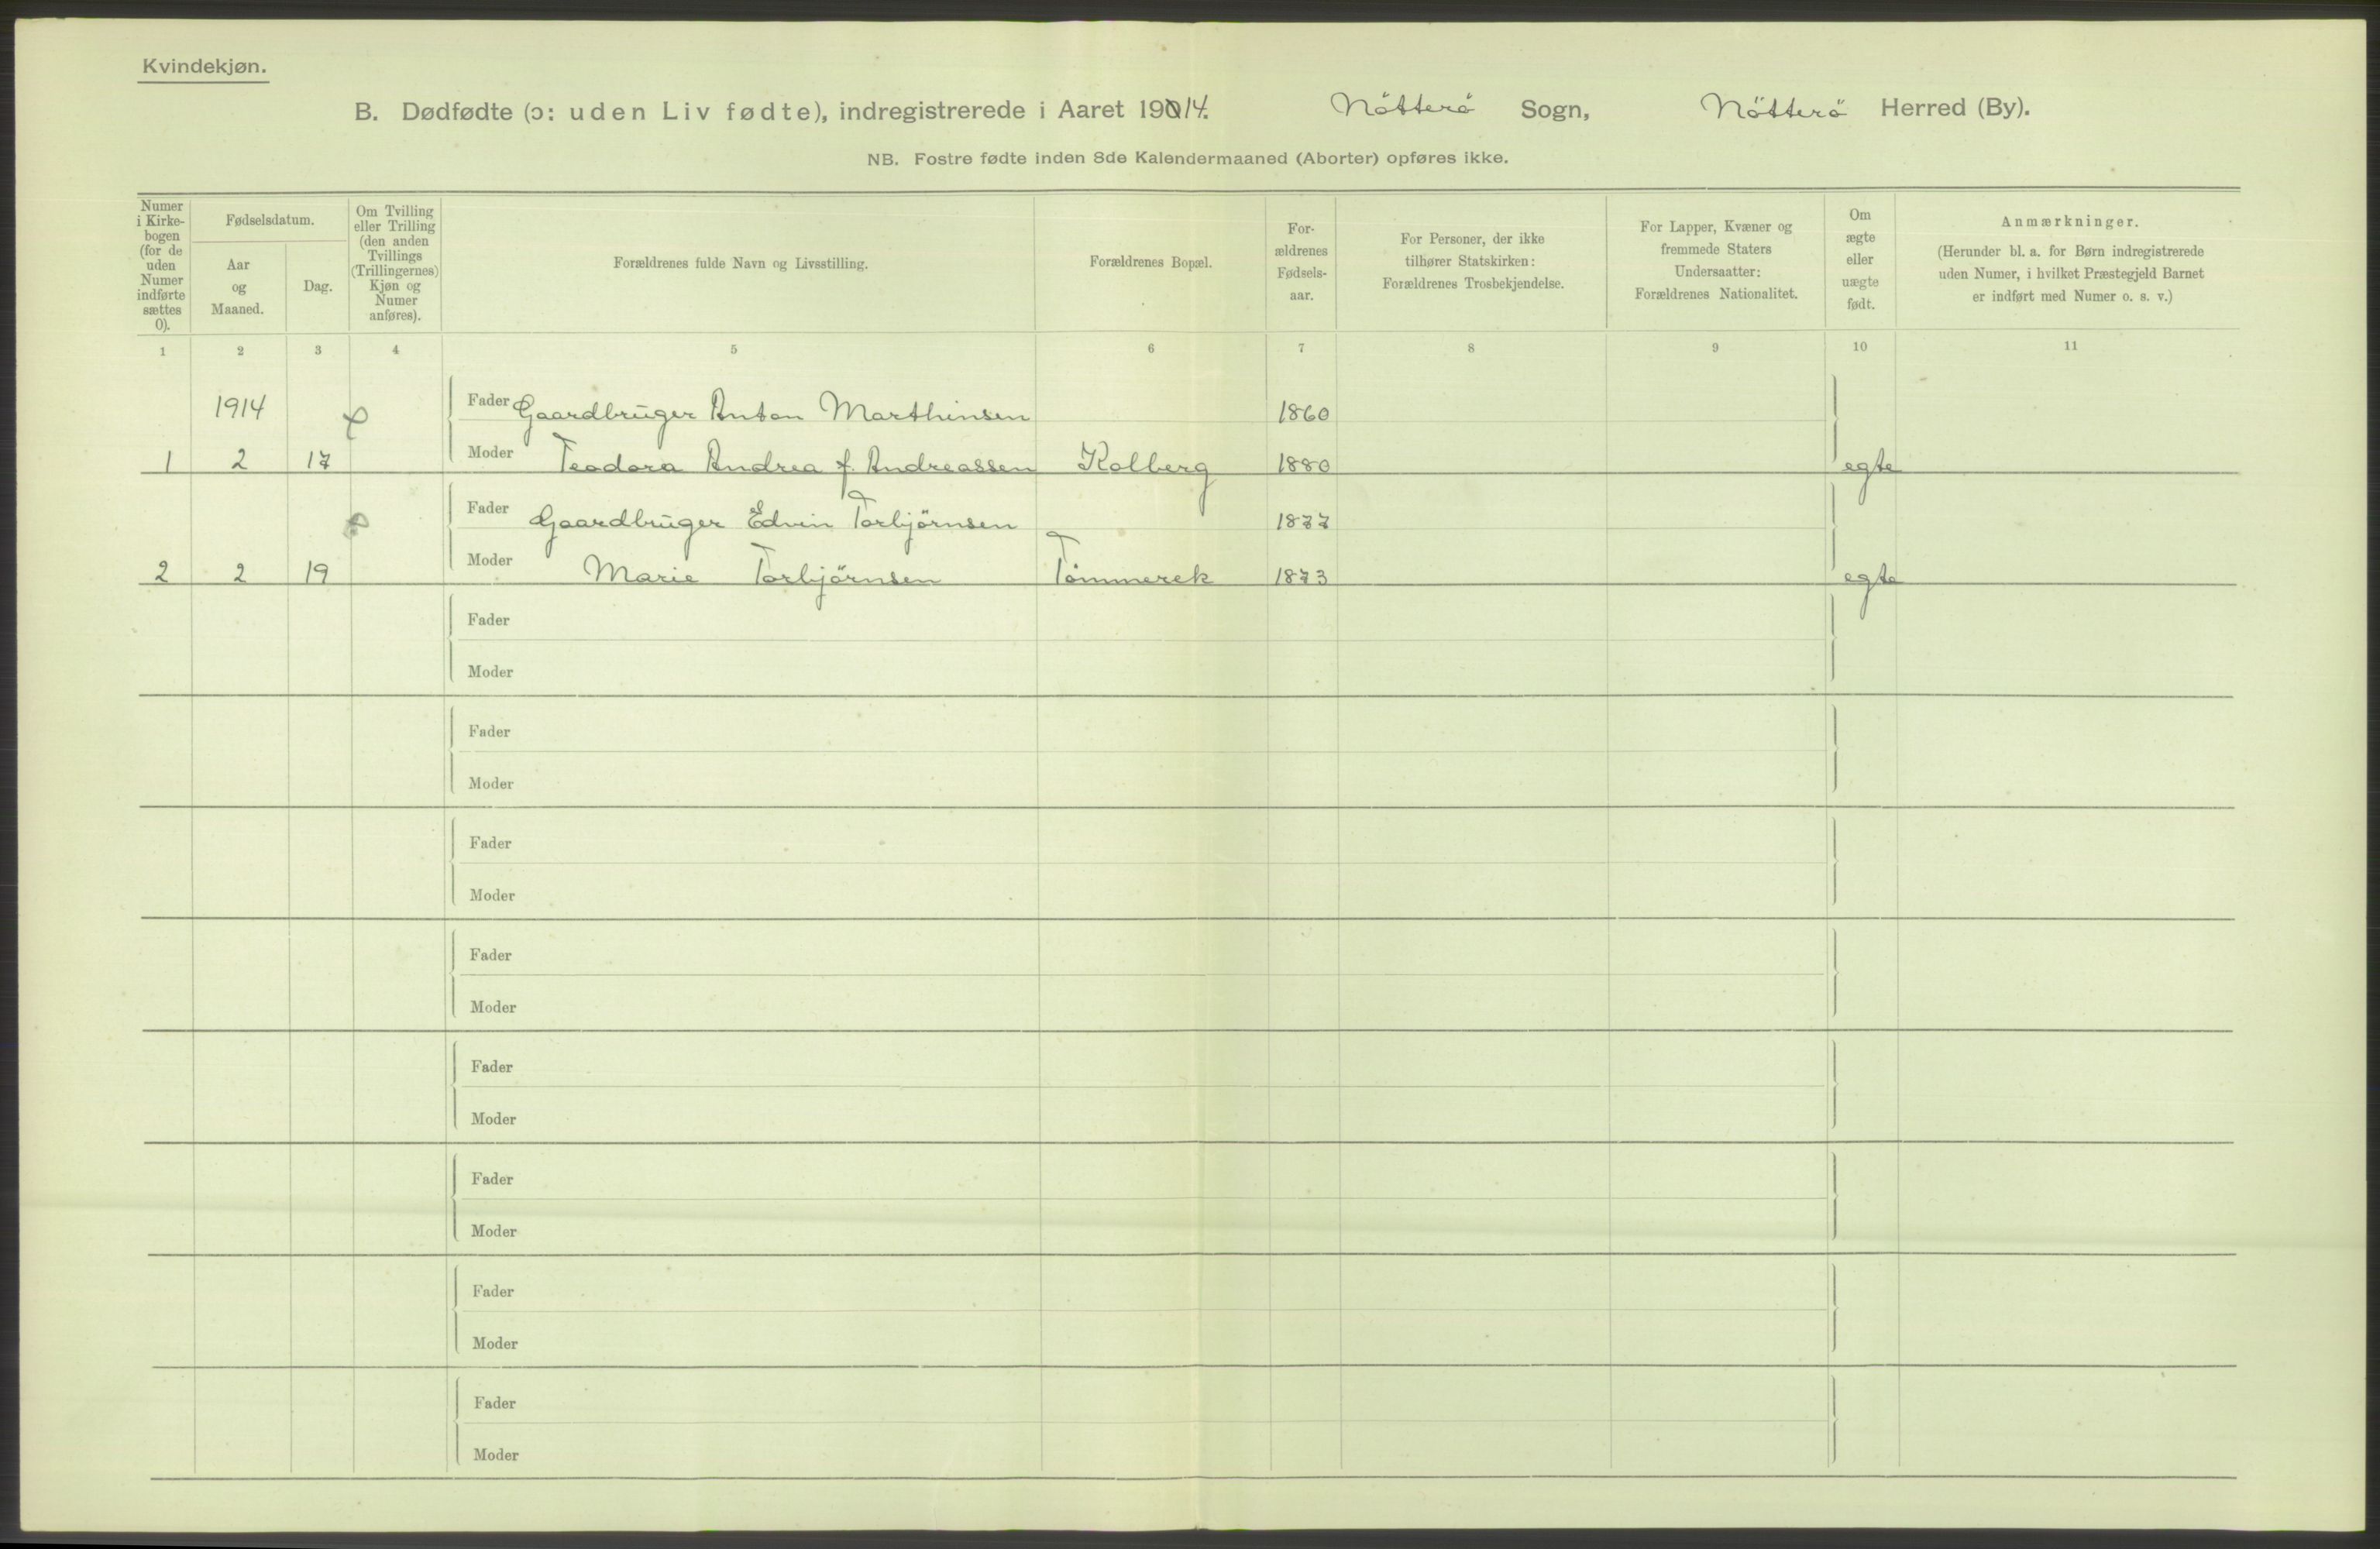 Kvindekjøn.
B. Dødfødte (ɔ: uden Liv fødte), indregistrerede i Aaret 19014. Nötterö Sogn, Nötterö Herred (By).
NB. Fostre fødte inden 8de Kalendermaaned (Aborter) opføres ikke.
Numer
i Kirke-
bogen
(for de
uden
Numer
indførte
sættes
0).
Fødselsdatum.
Aar
og
Maaned.
Dag.
Om Tvilling
eller Trilling
(den anden
Tvillings
(Trillingernes)
Kjøn og
Numer
anføres).
Forældrenes fulde Navn og Livsstilling.
Forældrenes Bopæl.
For-
ældrenes
Fødsels-
aar.
For Personer, der ikke
tilhører Statskirken:
Forældrenes Trosbekjendelse.
For Lapper, Kvæner og
fremmede Staters
Undersaatter:
Forældrenes Nationalitet.
Om
ægte
eller
uægte
født.
Anmærkninger.
(Herunder bl. a. for Børn indregistrerede
uden Numer, i hvilket Præstegjeld Barnet
er indført med Numer o. s. v.)
1 2 3 4 5 6 7 8 9 10 11
1914 Fader Gaardbruger Anton Marthinsen 1860
1 2 17 Moder Teodora Andrea f. Andreassen Kolberg 1880 egte
Fader Gaardbruger Edvin Torbjörnsen 1877
2 2 19 Moder Marie Torbjörnsen Tömmerek 1873 egte
Fader
Moder
Fader
Moder
Fader
Moder
Fader
Moder
Fader
Moder
Fader
Moder
Fader
Moder
Fader
Moder